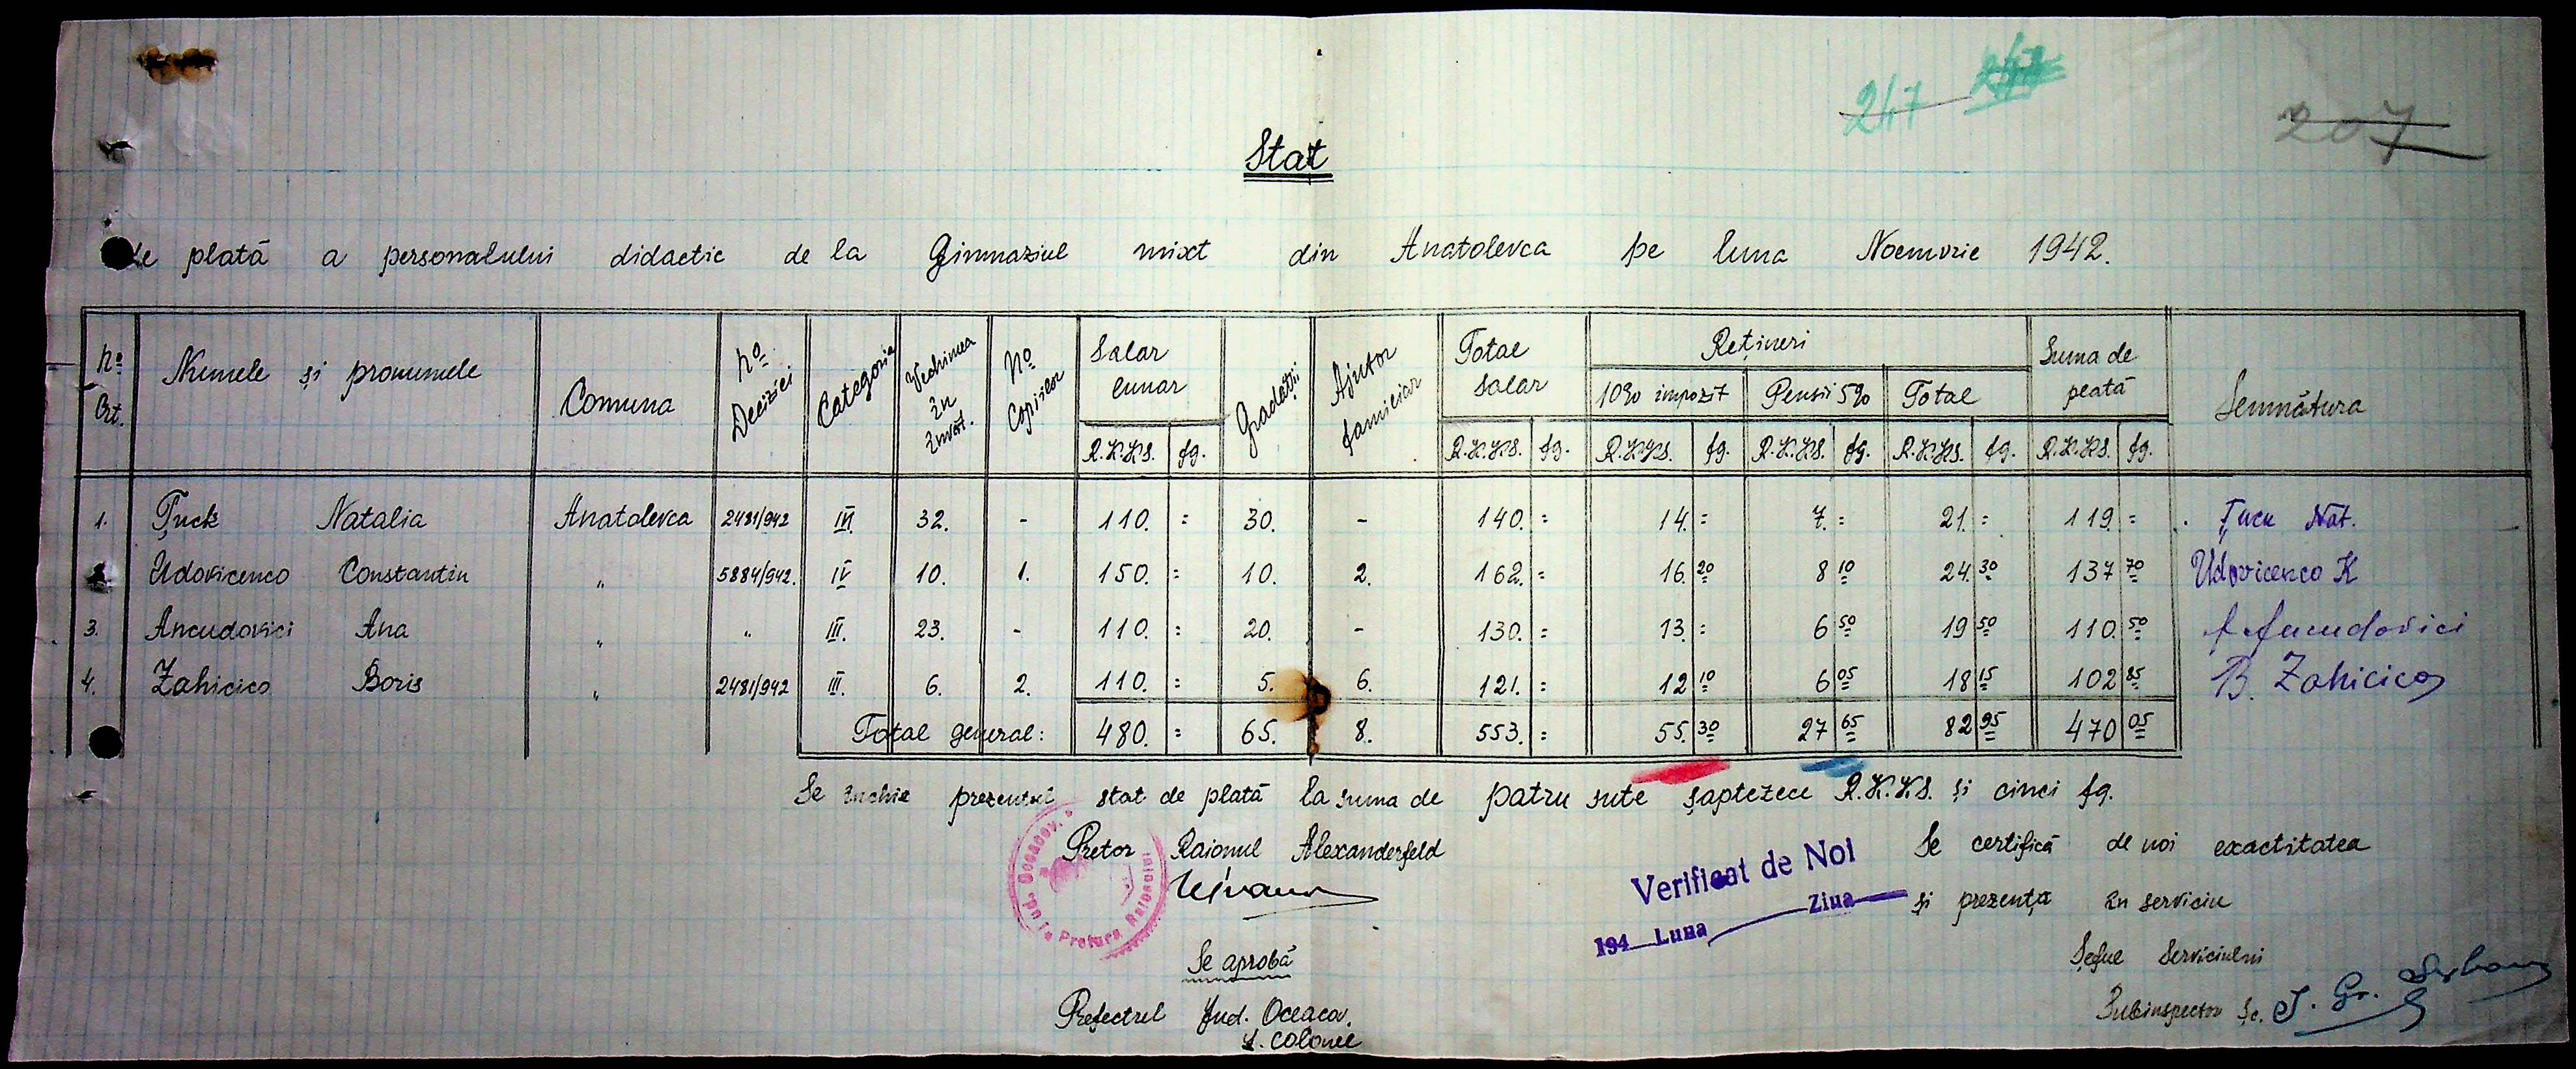 247 247
207
Stat
de plată a personalului didactic de la Gimnaziul mixt din Anatolevca pe luna Noemvrie 1942.
No Crt. Numele și pronumele Comuna No Deciziei Categorie Vechimea în învăț. No Copiilor Salar lunar Gradații Ajutor familiar Total salar Rețineri Suma de plată Semnătura
10% impozit Pensii 5% Total
R.K.K.S. fg. R.K.K.S. fg. R.K.K.S. fg. R.K.K.S. fg. R.K.K.S. fg. R.K.K.S. fg.
1. Țuck Natalia Anatolevca 2481/942 III 32. - 110. = 30. - 140. = 14. = 7. = 21. = 119. = Țucu Nat.
2. Udovicenco Constantin " 5884/942. IV 10. 1. 150. = 10. 2. 162. = 16. 20 8 10 24. 30 137 70 Udovicenco K
3. Ancudovici Ana " " III. 23. - 110. = 20. - 130. = 13. = 6 50 19 50 110. 50 Ancudovici
4. Zahicico Boris " 2481/942 III. 6. 2. 110. = 5. 6. 121. = 12 10 6 05 18 15 102 85 B. Zahicico
Total general: 480. = 65. 8. 553. = 55. 30 27 65 82 95 470 05
Se închie prezentul stat de plată la suma de patru sute șaptezece R.K.K.S. și cinci fg.
Pretor Raionul Alexanderfeld
Verificat de Noi
194 Luna Ziua
Se certifică de noi exactitatea
și prezența în serviciu
Se aprobă
Prefectul Jud. Oceacov.
Lt. Colonel
Șeful Serviciului
Subinspector Șc. I. Gr.